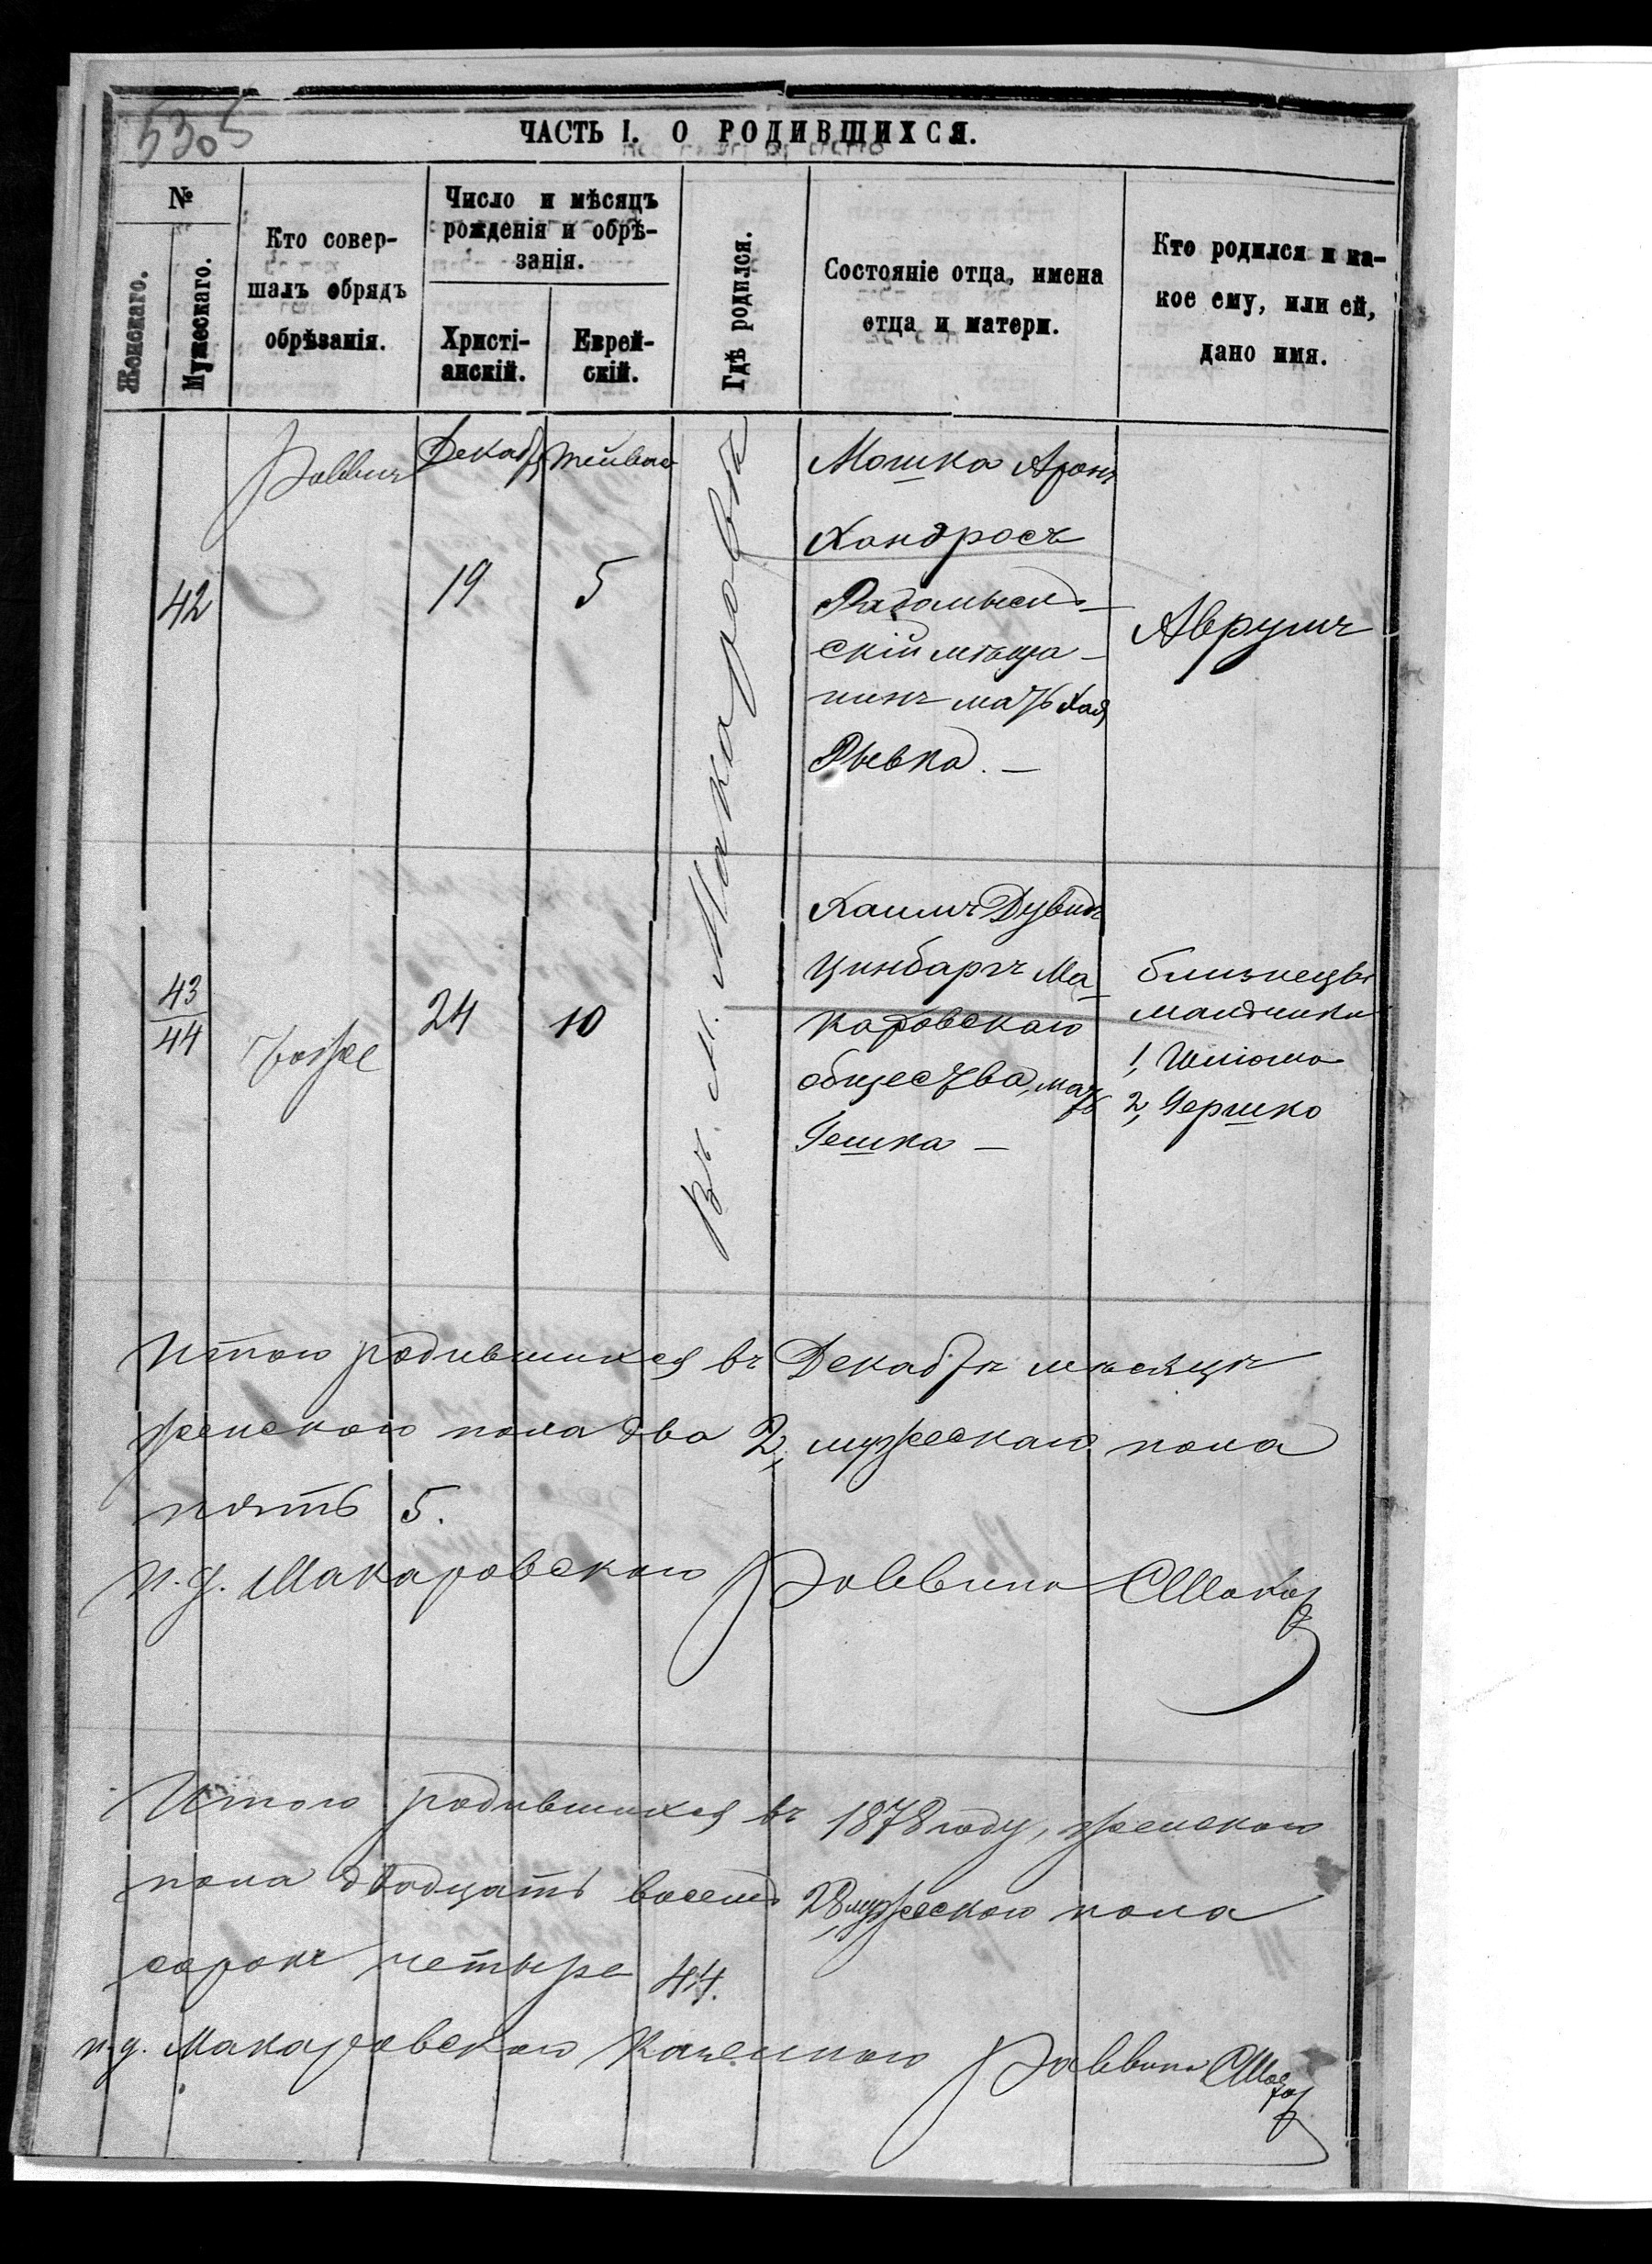 5305
ЧАСТЬ I. О РОДИВШИХСЯ.
№
Женскаго.
Мужескаго.
Кто совер-
шалъ обрядъ
обрѣзанія.
Число и мѣсяцъ
рожденія и обрѣ-
занія.
Христі-
анскій.
Еврей-
скій.
Гдѣ родился.
Состояніе отца, имена
отца и матери.
Кто родился и ка-
кое ему, или ей,
дано имя.
42
Раввинъ
Декабр
19
Тейвас
5
Въ м. Макаровѣ
Мошка Аронъ
Хандросъ
Радомысль-
скій мѣща-
нинъ мать Хая
Рывка. —
Аврумъ
43
44
тоже
24
10
Хаимъ Дувидъ
Цинбаргъ Ма-
каровскаго
общества, мать
Гешка —
близнецы
мальчики
1, Шлюма
2, Гершко
Итого родившихся въ Декабрѣ мѣсяцѣ
женскаго пола два 2, мужескаго пола
пять 5.
И. д. Макаровскаго Раввина СМакар
Итого родившихся въ 1878 году, женскаго
пола двадцать восемь 28, мужескаго пола
сорокъ четыре 44.
и. д. Макаровскаго Казеннаго Раввина СМакар